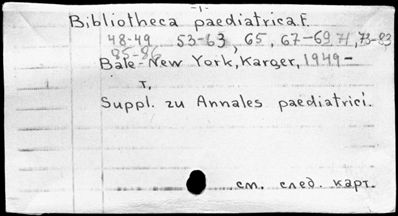 -1-
Bibliotheca paediatrica.F.
48-49 53-63, 65, 67-69, 71, 73-83
85-86
Bâle-New York, Karger, 1949-
т,
Suppl. zu Annales paediatrici.
см. след. карт.